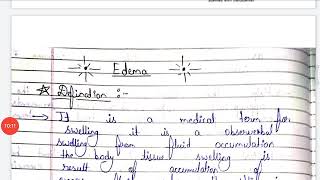 Edema
Defination :-
It is a medical term for
swelling it is a observerbal
swelling from fluid accumulation
the body tissue swelling is
result of accumulation of
10:11